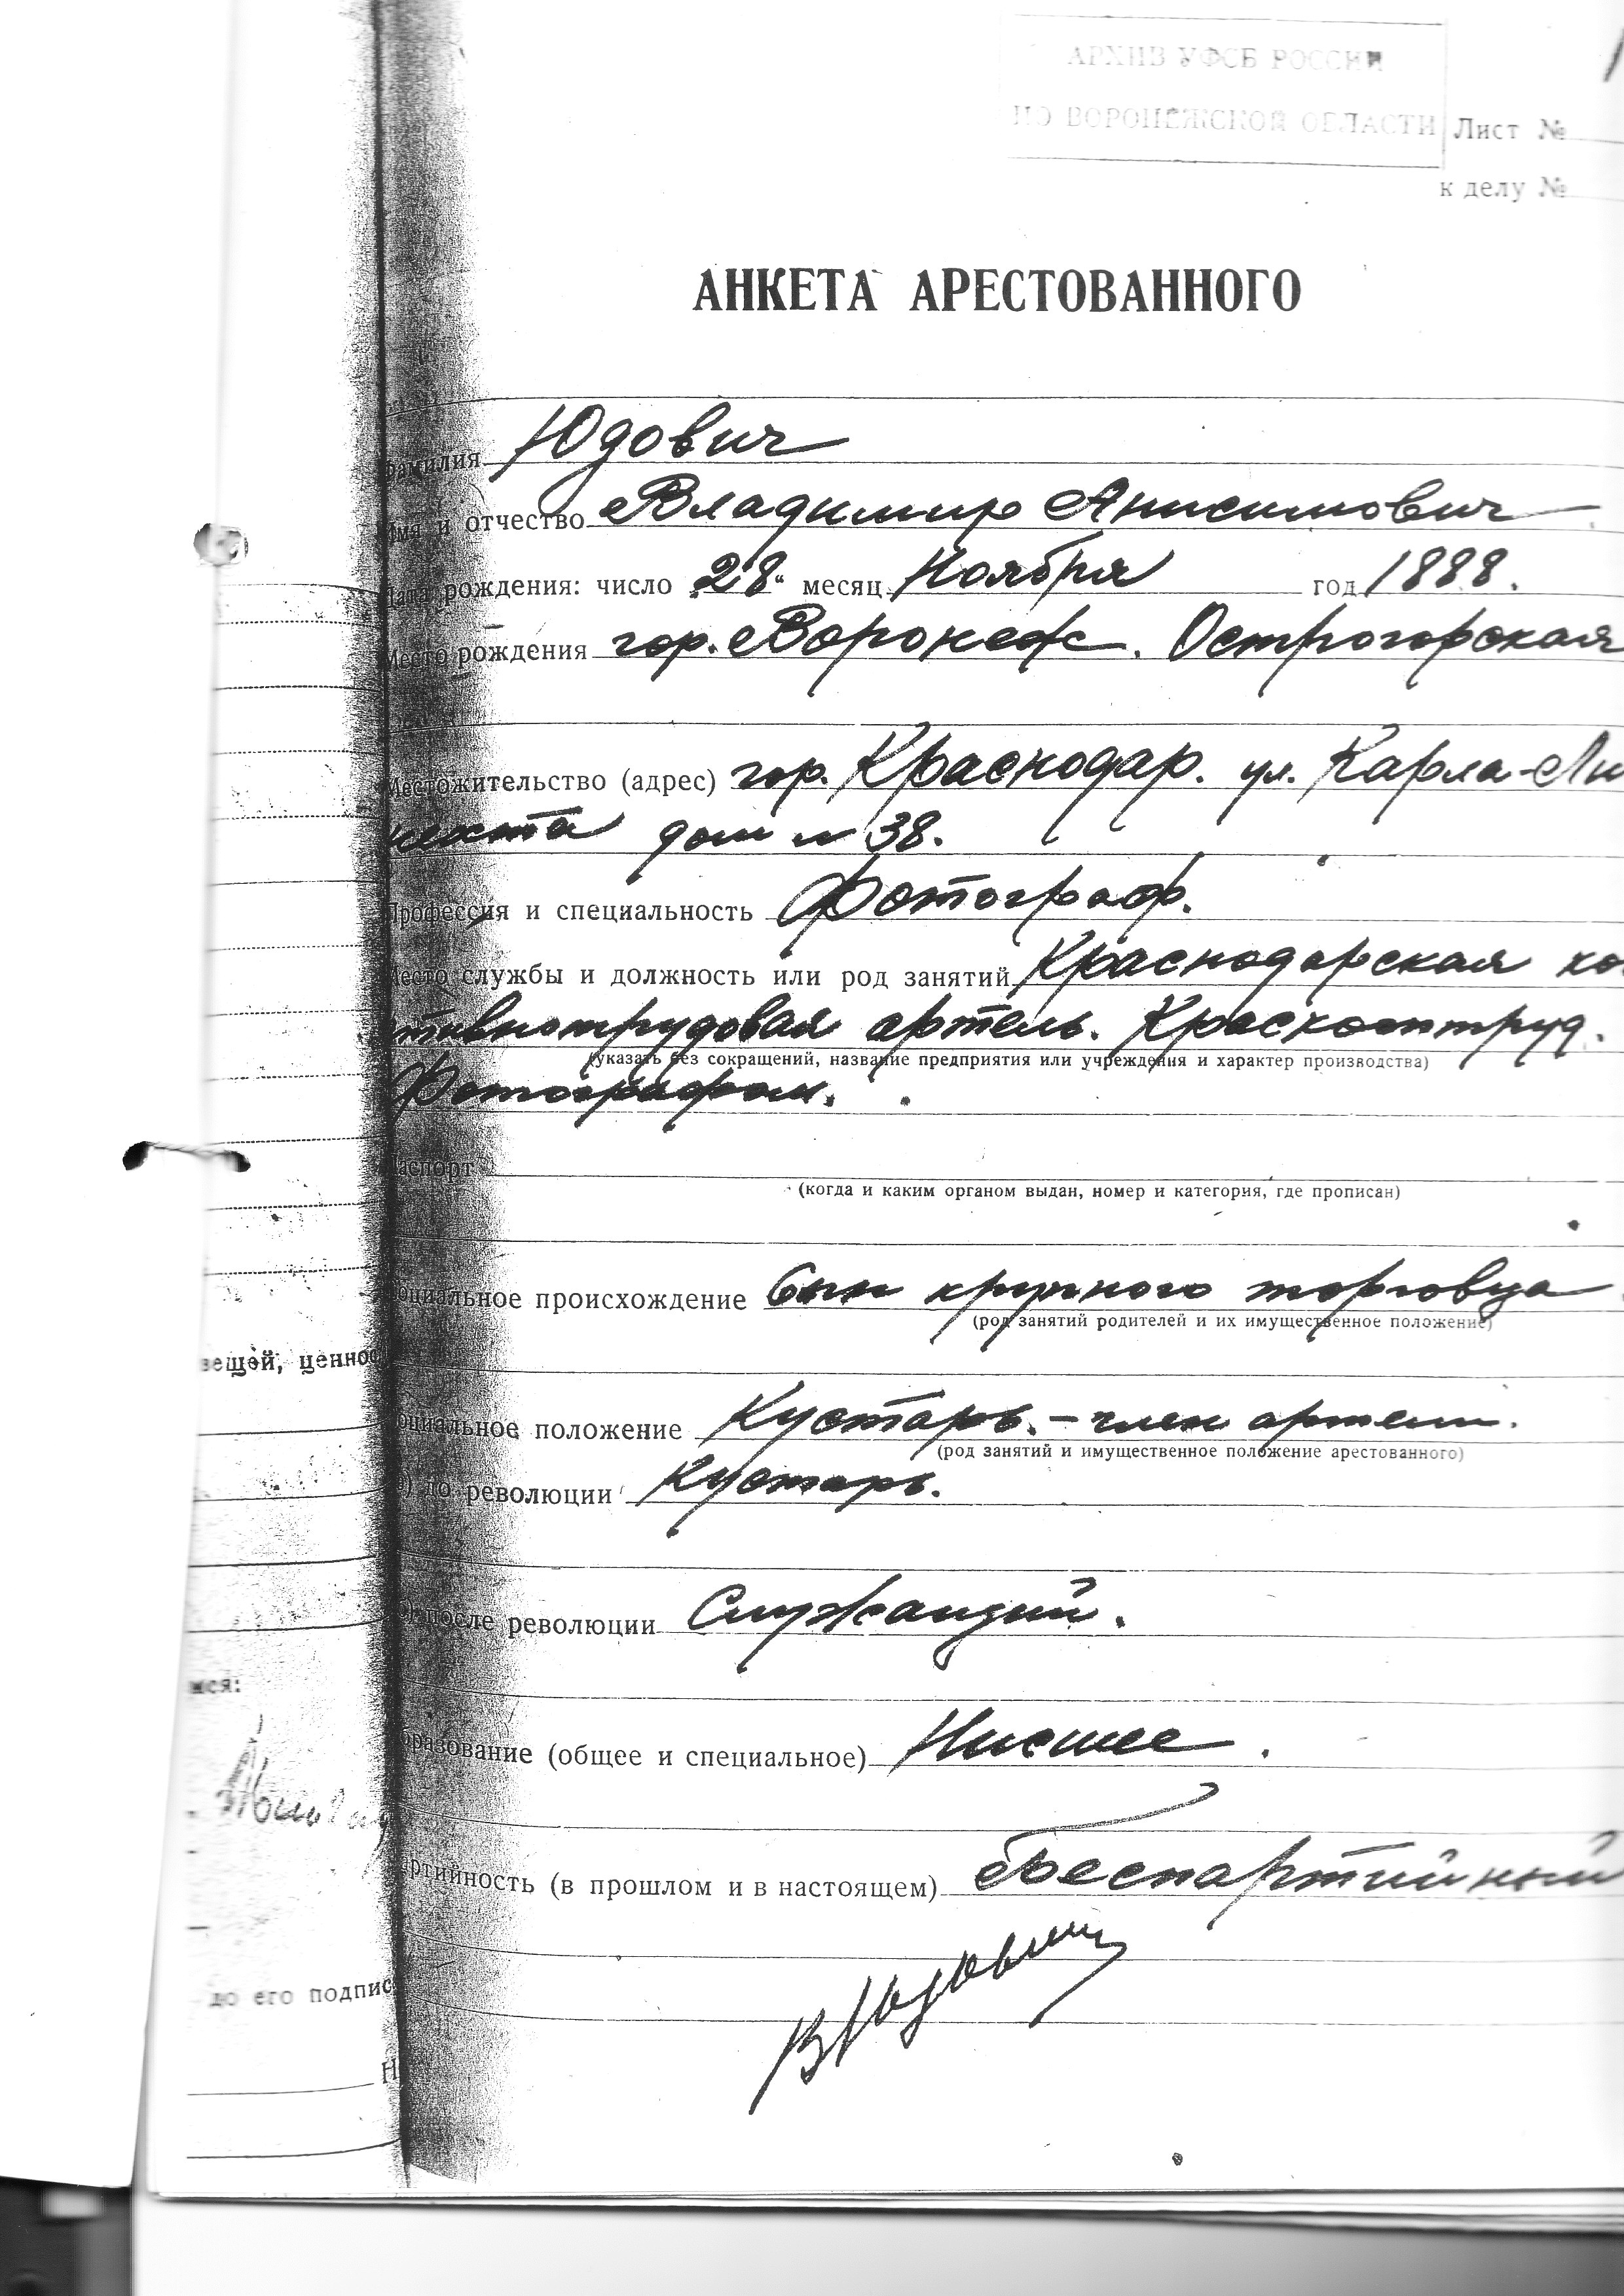 АРХИВ УФСБ РОССИИ
ПО ВОРОНЕЖСКОЙ ОБЛАСТИ
Лист №
к делу №
АНКЕТА АРЕСТОВАННОГО
Фамилия Юдович
Имя и отчество Владимир Анисимович
Дата рождения: число "28" месяц Ноября год 1888.
Место рождения гор. Воронеж. Острогорская
Местожительство (адрес) гор. Краснодар. ул. Карла-Ли
нехта дом № 38.
Профессия и специальность Фотограф.
Место службы и должность или род занятий Краснодарская ко
тивнотрудовая артель.
(указать без сокращений, название предприятия или учреждения и характер производства)
Фотографом.
Паспорт
(когда и каким органом выдан, номер и категория, где прописан)
оциальное происхождение Сын крупного торговца
(род занятий родителей и их имущественное положение)
вещей, ценнос
оциальное положение Кустарь. - член артели.
(род занятий и имущественное положение арестованного)
а) до революции Кустарь.
б) после революции Служащий.
мся:
бразование (общее и специальное) Нисшее.
артийность (в прошлом и в настоящем) Беспартийный
до его подпис
ВЮдович